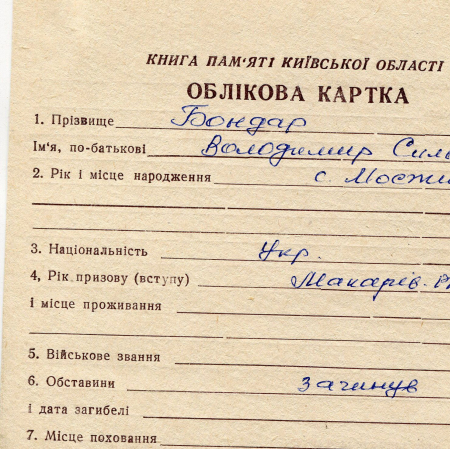 КНИГА ПАМ'ЯТІ КИЇВСЬКОЇ ОБЛАСТІ
ОБЛІКОВА КАРТКА
1. Прізвище Бондар
Ім'я, по-батькові Володимир
2. Рік і місце народження с.
3. Національність Укр.
4, Рік призову (вступу) Макарів.
і місце проживання
5. Військове звання
6. Обставини загинув
і дата загибелі
7. Місце поховання